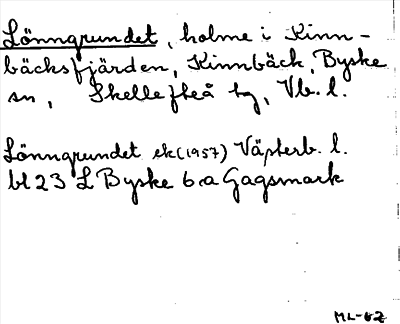 Lönngrundet, holme i Kinn-
bäcksfjärden, Kinnbäck, Byske
sn, Skellefteå tg, Vb. l.
Lönngrundet ek (1957) Västerb. l.
bl 23 L Byske 6a Gagsmark